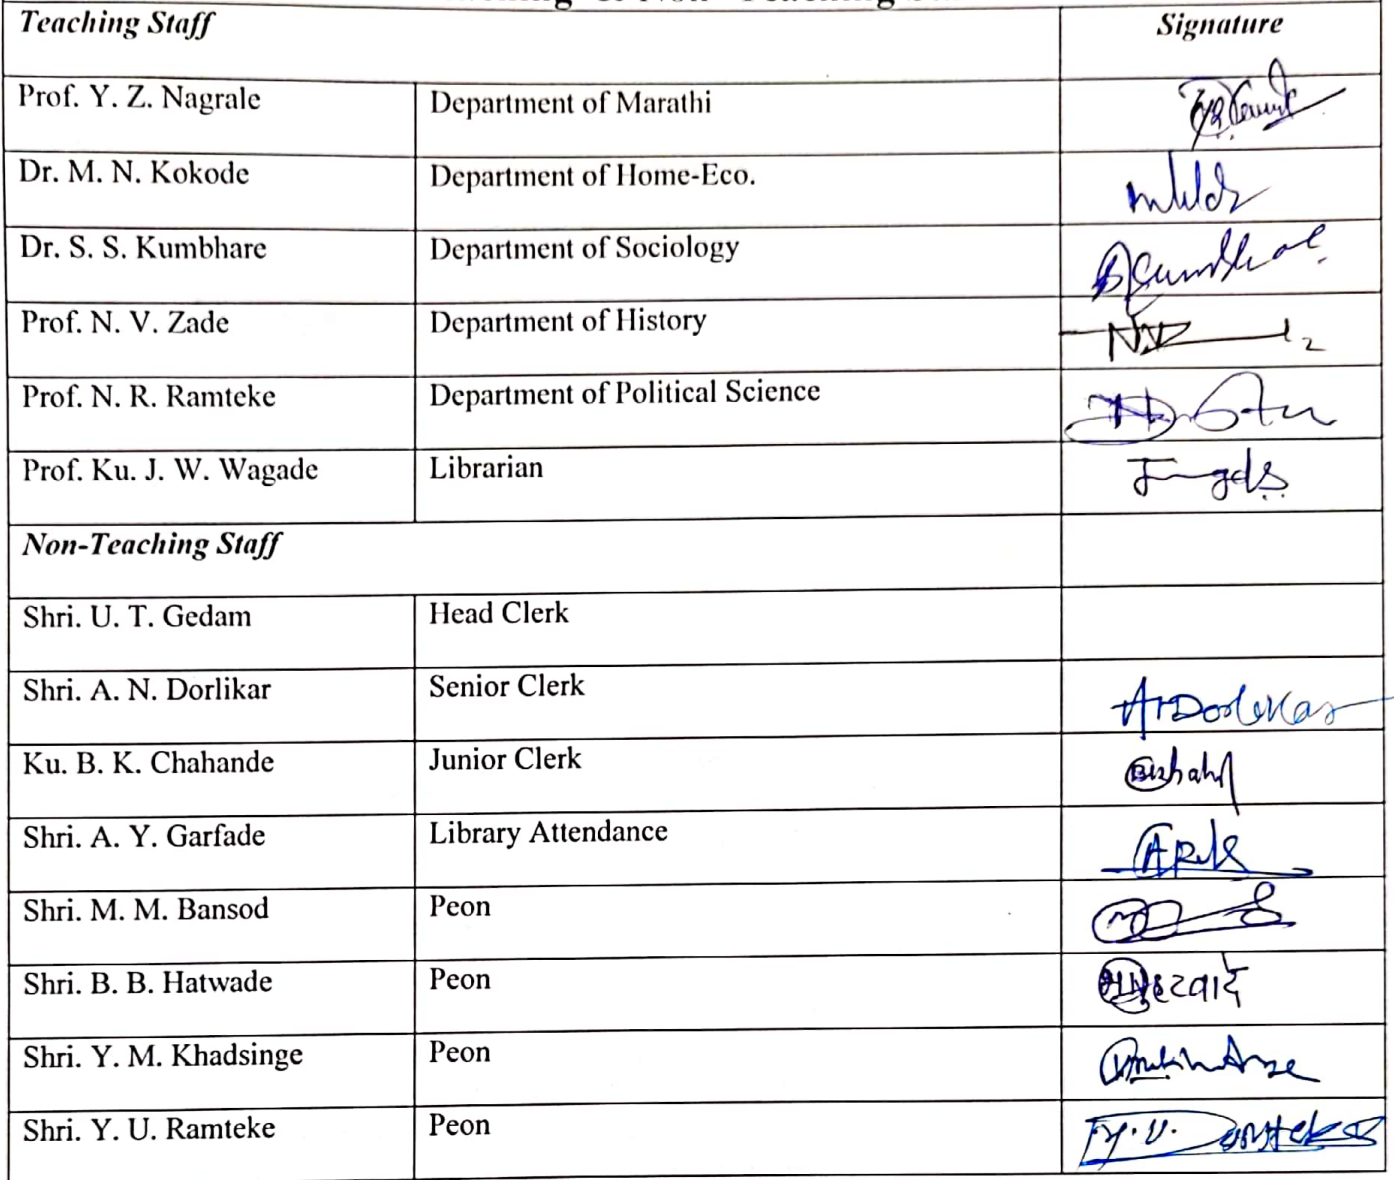 Teaching Staff Signature
Prof. Y. Z. Nagrale Department of Marathi
Dr. M. N. Kokode Department of Home-Eco.
Dr. S. S. Kumbhare Department of Sociology
Prof. N. V. Zade Department of History
Prof. N. R. Ramteke Department of Political Science
Prof. Ku. J. W. Wagade Librarian
Non-Teaching Staff
Shri. U. T. Gedam Head Clerk
Shri. A. N. Dorlikar Senior Clerk
Ku. B. K. Chahande Junior Clerk
Shri. A. Y. Garfade Library Attendance
Shri. M. M. Bansod Peon
Shri. B. B. Hatwade Peon
Shri. Y. M. Khadsinge Peon
Shri. Y. U. Ramteke Peon